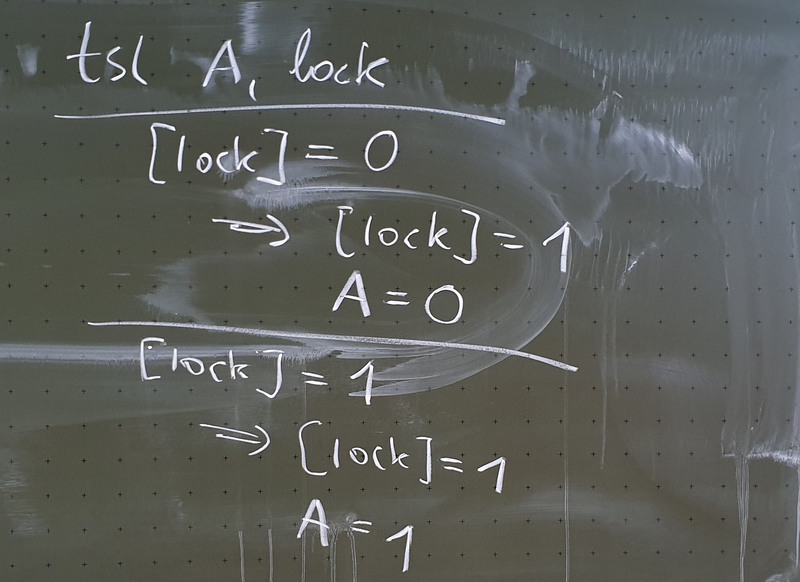 tsl A, lock
[lock] = 0
⇒ [lock] = 1
A = 0
[lock] = 1
⇒ [lock] = 1
A = 1